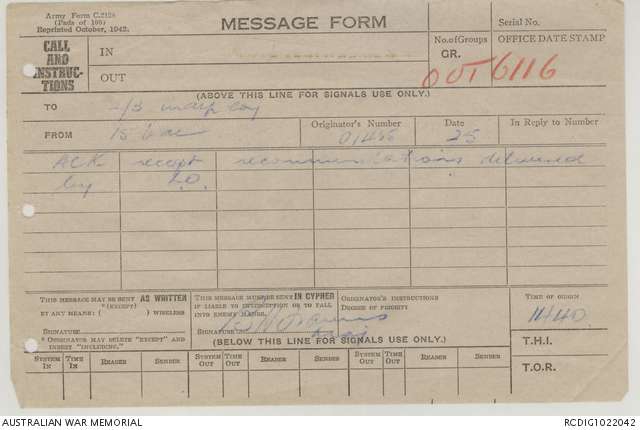 Army Form C.2128
(Pads of 100)
Reprinted October, 1942.
MESSAGE FORM
Serial No.
CALL
AND
INSTRUC-
TIONS
IN
OUT
No. of Groups
GR.
OFFICE DATE STAMP
OUT 6116
(ABOVE THIS LINE FOR SIGNALS USE ONLY.)
TO 2/3 Indep Coy
FROM 15
Originator's Number
Date 25
In Reply to Number
ACK receipt recommendations delivered
by L.O.
THIS MESSAGE MAY BE SENT AS WRITTEN
*(EXCEPT)
BY ANY MEANS: ( ) WIRELESS
SIGNATURE
* ORIGINATOR MAY DELETE "EXCEPT" AND
INSERT "INCLUDING."
THIS MESSAGE MUST BE SENT IN CYPHER
IF LIABLE TO INTERCEPTION OR TO FALL
INTO ENEMY HANDS.
SIGNATURE
ORIGINATOR'S INSTRUCTIONS
DEGREE OF PRIORITY
TIME OF ORIGIN
1440
(BELOW THIS LINE FOR SIGNALS USE ONLY.)
T.H.I.
T.O.R.
SYSTEM IN TIME IN READER SENDER SYSTEM OUT TIME OUT READER SENDER SYSTEM OUT TIME OUT READER SENDER
AUSTRALIAN WAR MEMORIAL RCDIG1022042